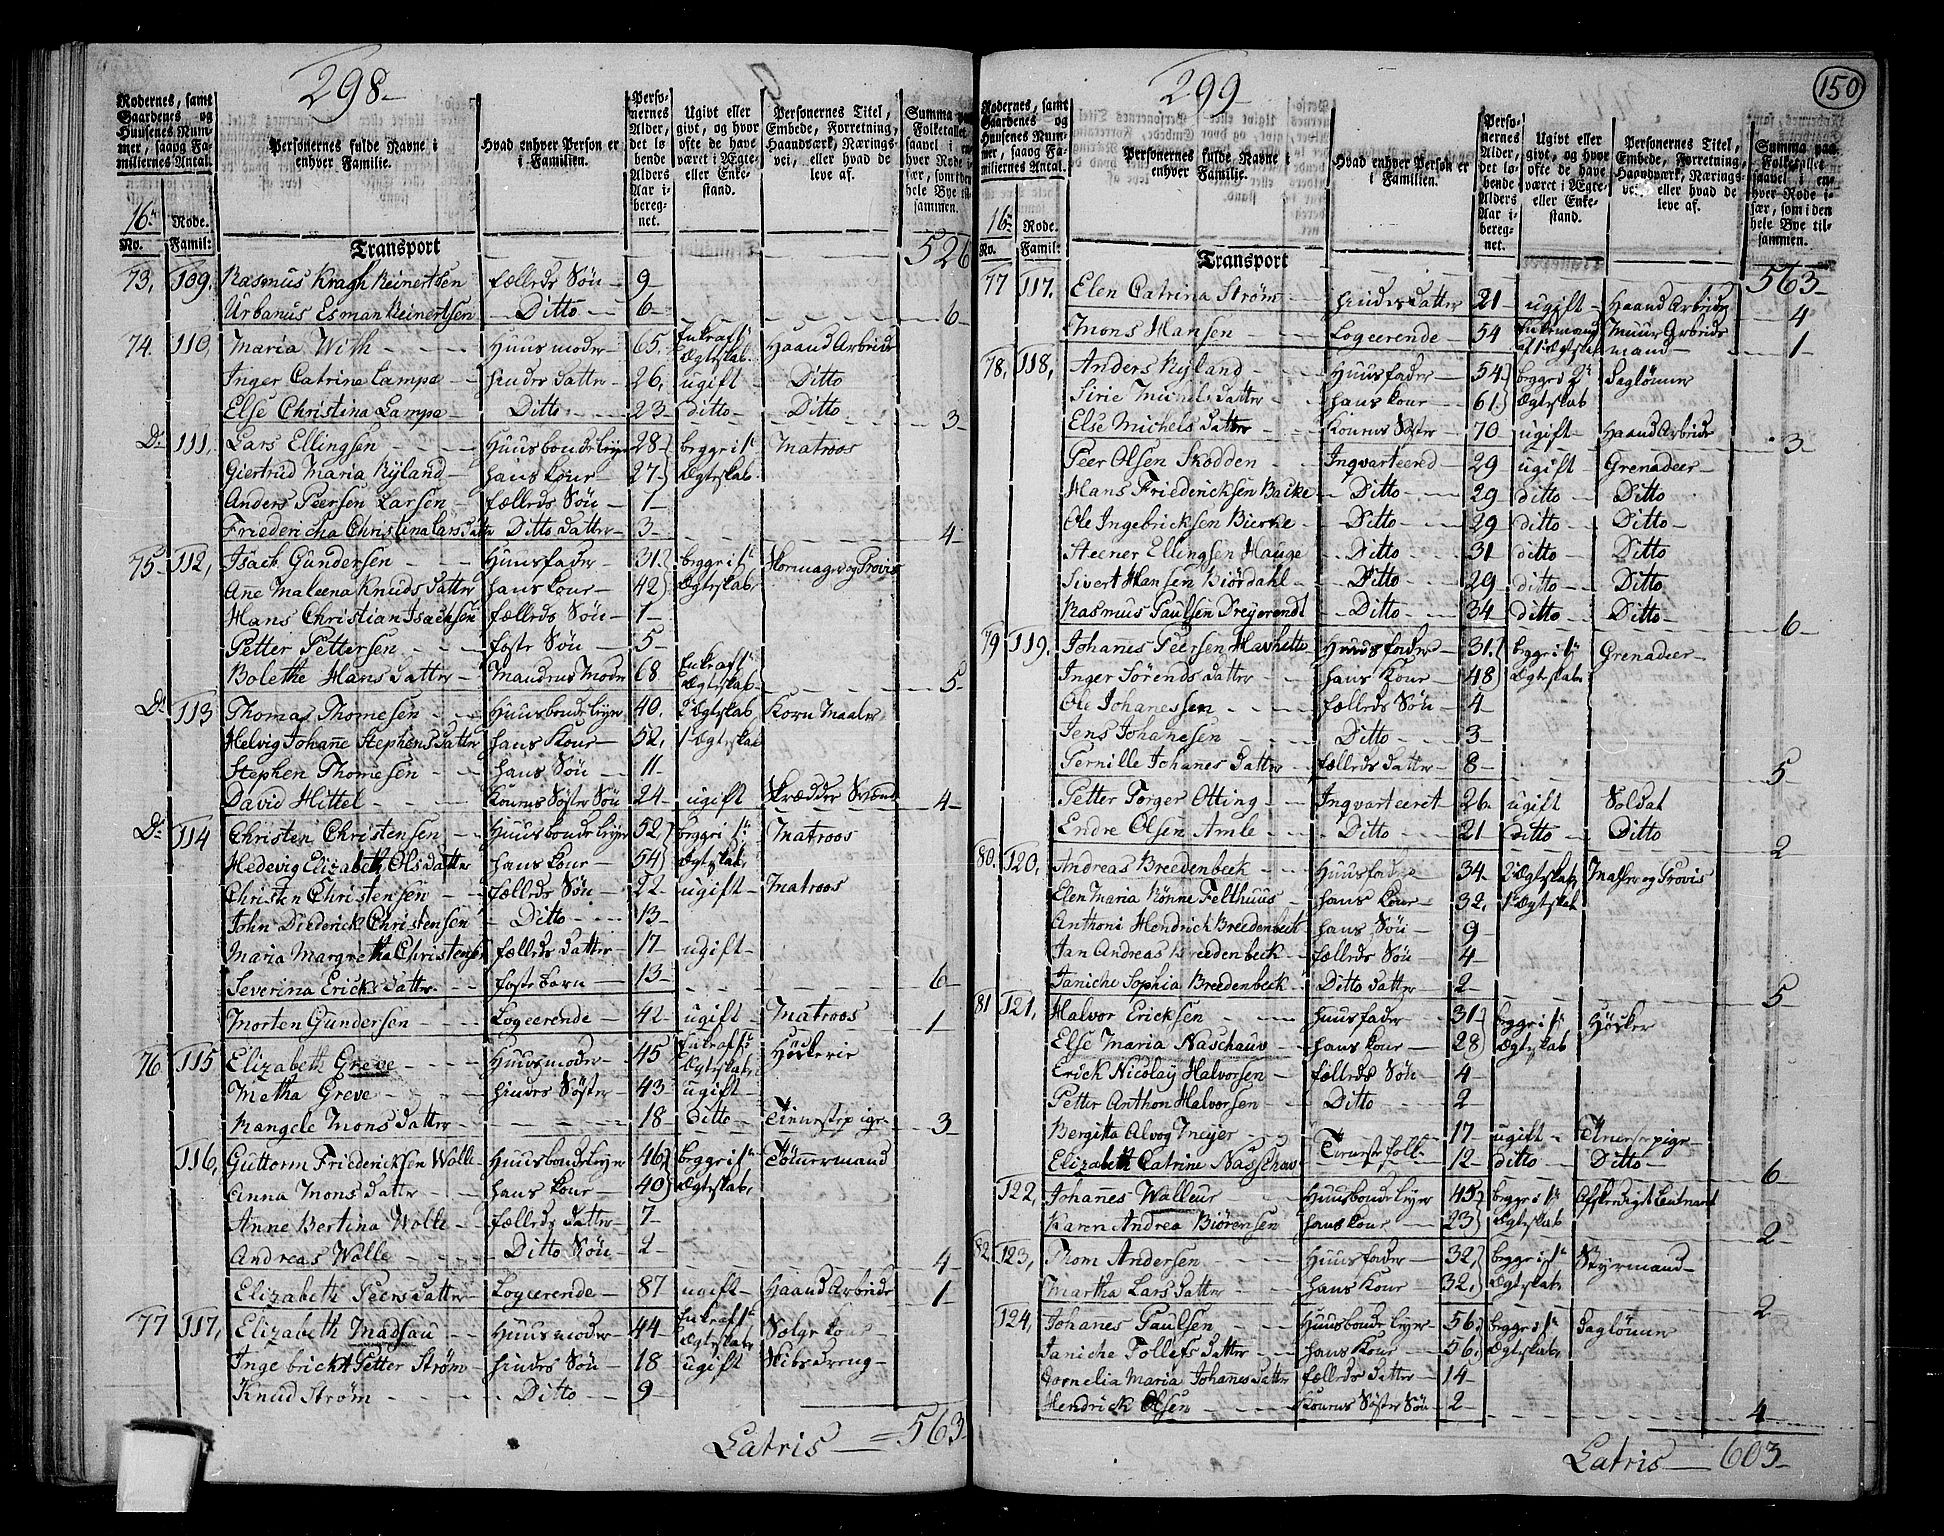 298
Rodernes, samt Gaardenes og Huusenes Nummer, saavog Familiernes Antal.
Personernes fulde Navne i enhver Familie.
Hvad enhver Person er i Familien.
Personernes Alder, det løbende Alders Aar iberegnet.
Ugivt eller givt, og hvor ofte de have været i Ægte- eller Enkestand.
Personernes Titel, Embede, Forretning, Haandværk, Næringsvei, eller hvad de leve af.
Summa paa Folketallet saavel i enhver Rode især, som i den hele Bye tilsammen.
16 Rode.
No. Famil:
Transport 526
73, 109, Rasmus Kragh Reinertsen fælleds Søn 9
Urbanus Esman Reinertsen Ditto 6 6
74. 110, Maria With Huusmoder 65, Enke aft 1te Ægteskab Haand Arbeide
Inger Catrina Lampe hindes datter 26, ugift Ditto
Else Christina Lampe Ditto 23 ditto Ditto 3
Do 111, Lars Ellingsen Huusbonde leyer 28 begge i 1te Matroos
Giertrud Maria Ryland hans Kone 27 Ægteskab
Anders Peersen Larsen fælleds Søn 1
Friedericha Christina Lars datter Ditto datter 3 4
75 112, Isack Gundersen Huusfader 31 begge i 1te
Ane Maleena Knuds datter hans Kone 42 Ægteskab
Hans Christian Isachsen fælleds Søn 1
Petter Pettersen foster Søn 5
Bolethe Hans datter Mandens Moder 68 Enke aft 1te Ægteskab 5
Do 113 Thomas Thomesen Huusbonde leyer 40, 2 Ægteskab Korn Maaler
Helvig Johanne Stephens datter hans Kone 52, 1te Ægteskab
Stephen Thomesen hans Søn 11
David Hittel Konens Søster Søn 24 ugift Skrædder Svend 4
Do 114 Christen Christensen Huusbonde leyer 52 begge i 1te Matroos
Hedevig Elizabeth Ols datter hans Kone 54 Ægteskab
Christen Christensen fælleds Søn 22 ugift Matroos
John Diederick Christensen Ditto 13
Maria Margretha Christensen fælleds datter 17 ugift
Severina Ericks datter foster barn 13 6
Morten Gundersen Logeerende 42 ugift Matroos 1
76 115 Elizabeth Greve Huusmoder 45 Enke aft 1te Ægteskab Høckerie
Metha Greve hindes Søster 43 ugift
Mangele Mons datter 18 Ditto Tieneste pige 3
116, Guttorm Friedericksen Wolle Huusbonde leyer 46 begge i 1te Tømmermand
Anna Mons datter hans Kone 40 Ægteskab
Anne Bertina Wolle fælleds datter 7
Andreas Wolle Ditto Søn 2 4
Elizabeth Peers datter Logeerende 87 ugift Haand Arbeide 1
77 117, Elizabeth Madsau Huusmoder 44 Enke aft 1te Ægteskab Sælge Kone
Ingebrickt Petter Strøm hindes Søn 18 ugift Skibs dreng
Knud Strøm Ditto 9
Latris = 563
299
150
Rodernes, samt Gaardenes og Huusenes Nummer, saavog Familiernes Antal.
Personernes fulde Navne i enhver Familie.
Hvad enhver Person er i Familien.
Personernes Alder, det løbende Alders Aar iberegnet.
Ugivt eller givt, og hvor ofte de have været i Ægte- eller Enkestand.
Personernes Titel, Embede, Forretning, Haandværk, Næringsvei, eller hvad de leve af.
Summa paa Folketallet saavel i enhver Rode især, som i den hele Bye tilsammen.
16 Rode.
No. Famil:
Transport 563
77 117. Elen Catrina Strøm hindes datter 21 ugift Haand Arbeide 4
Mons Hansen Logeerende 54 Enkemand af 1te Ægteskab Muur Arbeids mand 1
78, 118, Anders Ryland Huusfader 54 begge i 2 Daglønner
Sirie Michels datter hans Kone 61 Ægteskab
Else Michels datter Konens Søster 70 ugift Haand Arbeide 3
Peer Olsen Skodden Ingvarteered 29 ugift Grenadeer
Hans Friedericksen Bakke Ditto 29 ditto Ditto
Ole Ingebricksen Bierke Ditto 29 ditto Ditto
Steener Ellingsen Hauge Ditto 31 ditto Ditto
Sivert Hansen Biørdahl Ditto 29 ditto Ditto
Rasmus Paulsen Dreyerendt Ditto 34 ditto Ditto 6
79 119. Johanes Peersen Havhelte Huusfader 31 begge i 1te Grenadeer
Inger Sørends datter hans Kone 48 Ægteskab
Ole Johanessen fælleds Søn 4
Jens Johanesen Ditto 3
Pernille Johanes datter fælleds datter 8 5
Petter Torger Otting Ingvarteeret 26 ugift Soldat
Endre Olsen Amle Ditto 21 ditto Ditto 2
80. 120, Andreas Breedenbeck Huusfader 34 2 Ægteskab
Elen Maria Rønne Felthuus hans Kone 32, 1te Ægteskab
Anthoni Hendrick Breedenbeck hans Søn 9
Jan Andreas Breedenbeck fælleds Søn 4
Janiche Sophia Breedenbeck Ditto datter 2 5
81 121, Halvor Ericksen Huusfader 31 begge i 1te Høcker
Else Maria Naschauv hans Kone 28 Ægteskab
Erick Nicolay Halvorsen fælleds Søn 4
Petter Anthon Halvorsen Ditto 2
Bergitta Alvog Meyer Tieneste folk 17 ugift Tieneste pige
Elizabeth Catrine Naschauv 12 ditto Ditto 6
122, Johannes Walleur Huusbonde leyer 45 begge i 1te Afskeediget Leutnant
Karen Andrea Biørensen hans Kone 23 Ægteskab 2
82 123, Thom Andersen Huusfader 32, begge i 1te Styrmand
Martha Lars datter hans Kone 32, Ægteskab 2
124, Johanes Paulsen Huusbonde leyer 56 begge i 1te Daglønner
Janiche Tollefs datter hans Kone 56 Ægteskab
Cornelia Maria Johanes datter fælleds datter 14
Hendrick Olsen Konens Søster Søn 2 4
Latris 603